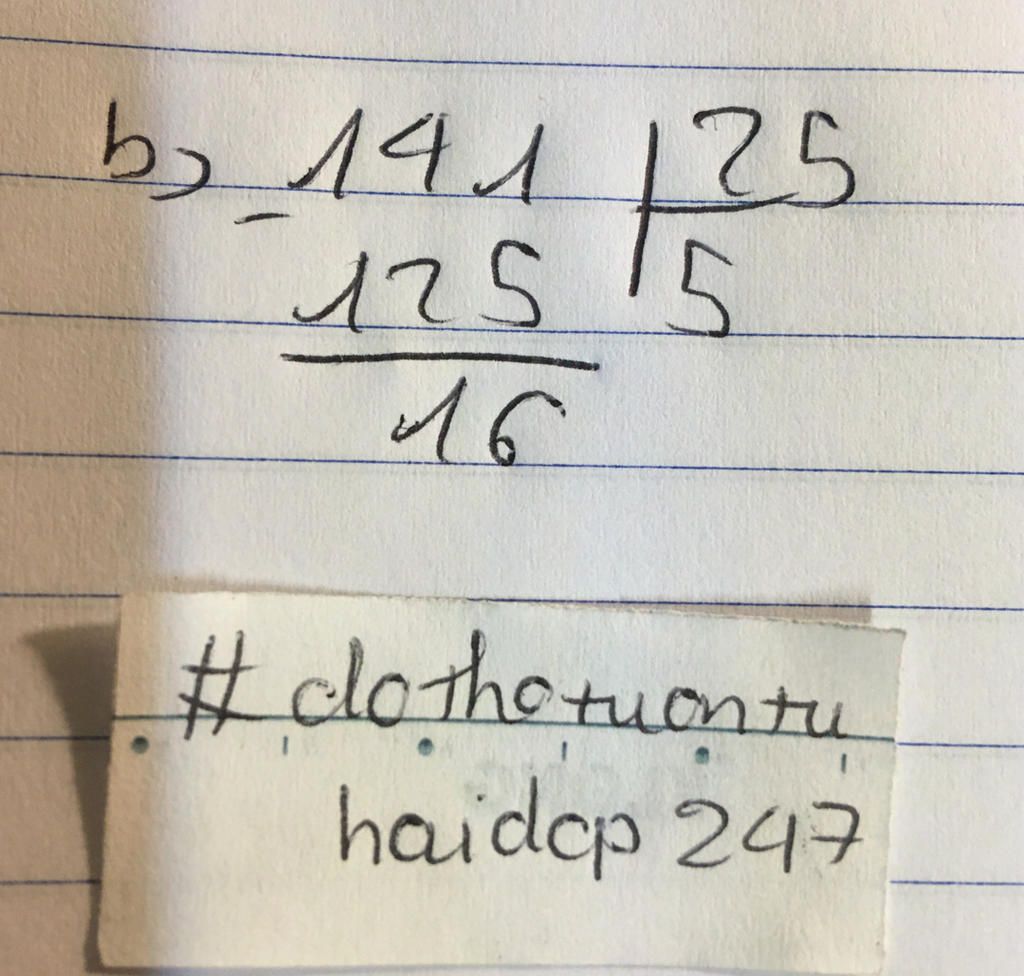 b) - 141 | 25
125 | 5
16
# dothotuantu
haidcp 247